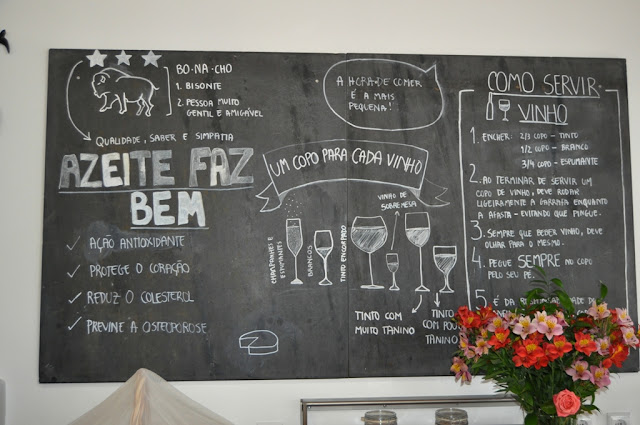 BO·NA·CHO
1. BISONTE
2. PESSOA MUITO
GENTIL E AMIGÁVEL
QUALIDADE, SABER E SIMPATIA
AZEITE FAZ
BEM
AÇÃO ANTIOXIDANTE
PROTEGE O CORAÇÃO
REDUZ O COLESTEROL
PREVINE A OSTEOPOROSE
A HORA DE COMER
É A MAIS
PEQUENA!
UM COPO PARA CADA VINHO
VINHO DE
SOBREMESA
ESPUMANTES
BRANCOS
TINTO ENCORPADO
TINTO COM
MUITO TANINO
TINTO
COM POUCO
TANINO
COMO SERVIR
VINHO
1. ENCHER: 2/3 COPO - TINTO
1/2 COPO - BRANCO
3/4 COPO - ESPUMANTE
2. AO TERMINAR DE SERVIR UM
COPO DE VINHO, DEVE RODAR
LIGEIRAMENTE A GARRAFA ENQUANTO
A AFASTA - EVITANDO QUE PINGUE.
3. SEMPRE QUE BEBER VINHO, DEVE
OLHAR PARA O MESMO.
4. PEGUE SEMPRE NO COPO
PELO SEU PÉ.
5. É DA RESPONSABILIDADE DA